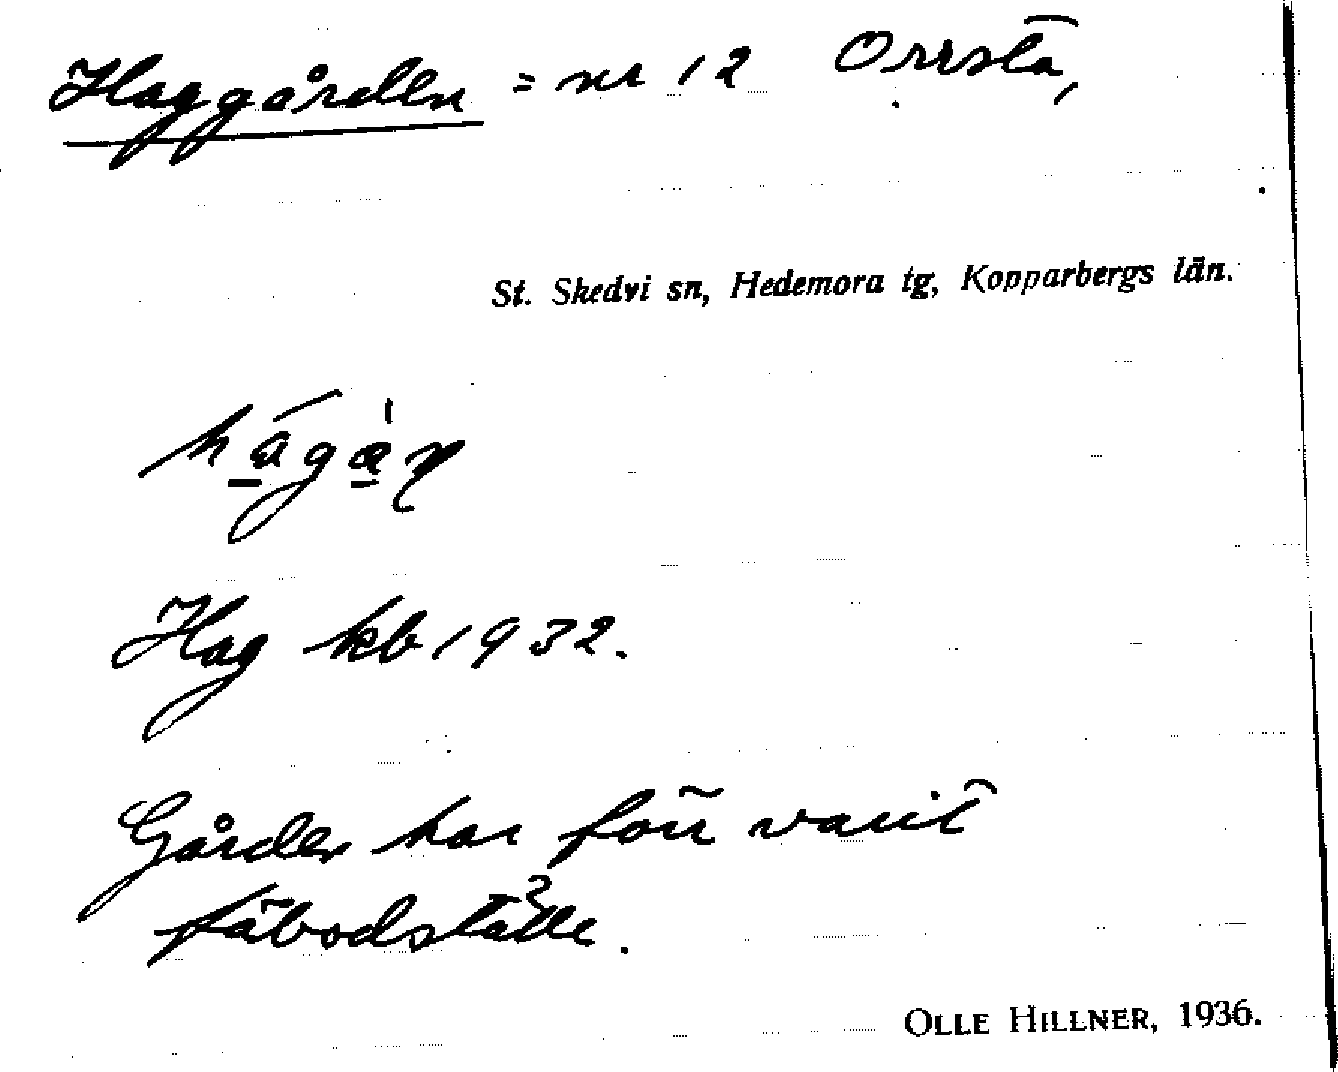 Haggården = nr 12 Orrsta,
St. Skedvi sn, Hedemora tg, Kopparbergs län.
Hag kb 1932.
Gården har förr varit
fäbodställe.
OLLE HILLNER, 1936.